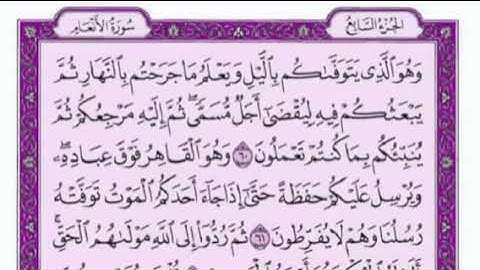 الجزء السابع
سورة الأنعام
وَهُوَ ٱلَّذِي يَتَوَفَّىٰكُم بِٱلَّيْلِ وَيَعْلَمُ مَا جَرَحْتُم بِٱلنَّهَارِ ثُمَّ
يَبْعَثُكُمْ فِيهِ لِيُقْضَىٰٓ أَجَلٌ مُّسَمًّى ۖ ثُمَّ إِلَيْهِ مَرْجِعُكُمْ ثُمَّ
يُنَبِّئُكُم بِمَا كُنتُمْ تَعْمَلُونَ ٦٠ وَهُوَ ٱلْقَاهِرُ فَوْقَ عِبَادِهِۦ ۖ
وَيُرْسِلُ عَلَيْكُمْ حَفَظَةً حَتَّىٰٓ إِذَا جَآءَ أَحَدَكُمُ ٱلْمَوْتُ تَوَفَّتْهُ
رُسُلُنَا وَهُمْ لَا يُفَرِّطُونَ ٦١ ثُمَّ رُدُّوٓا۟ إِلَى ٱللَّهِ مَوْلَىٰهُمُ ٱلْحَقِّ ۚ